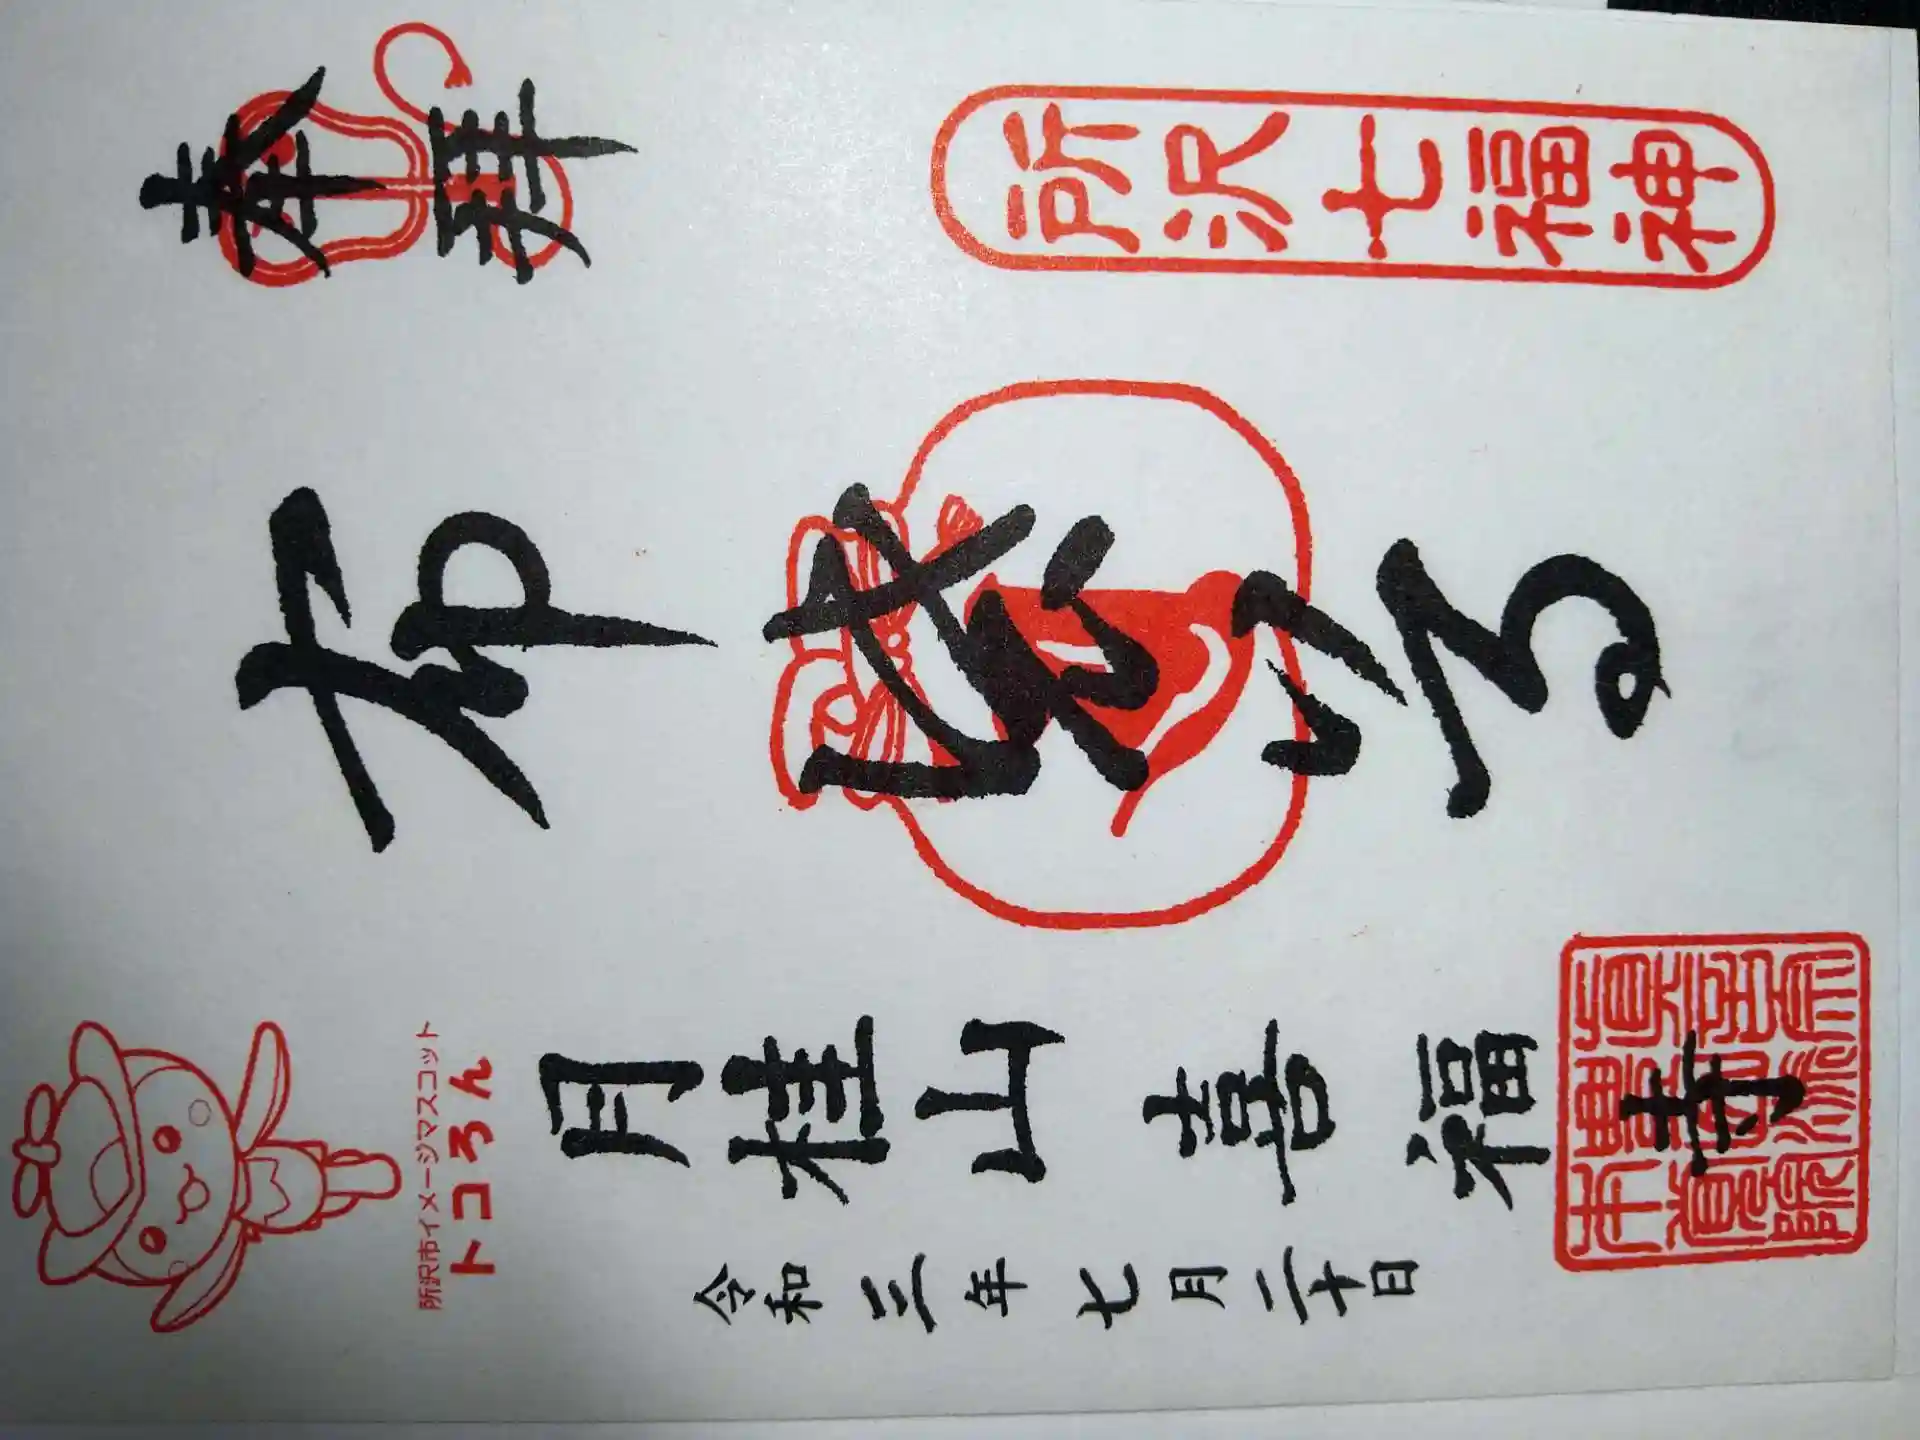 奉拝
所沢七福神
布袋尊
月桂山 喜福寺
令和三年七月二十日
所沢市イメージマスコット
トコろん